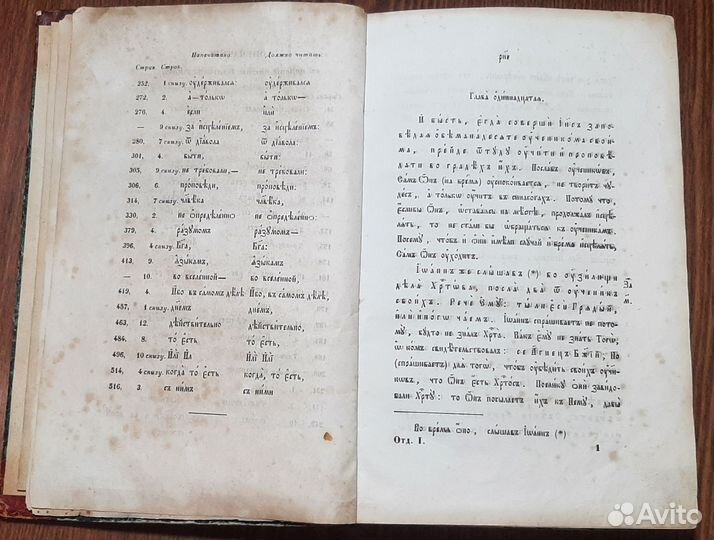 Напечатано Должно читать:
Стран. Строк.
252. 1 снизу. оудержвался оудержвался
272. 2. а–только а только–
276. 4. ѐсли ѝли
— 9 снизу. за исцѣленіемъ, за исцѣленіемъ:
280. 7 снизу. ѿ діавола ѿ діавола
301. 4. быти, быти;
305. 9 снизу. не требовали,— не требовали;
306. 6. проповѣди проповѣди;
314. 7 снизу. человѣка, человѣка
330. 2. не ѡпредѣленно не ѡпредѣленно;
379. 4. разумомъ разумомъ—
396. 4 снизу. Бга, Бга:
413. 9. языкамъ языкамъ
— 10. во вселенной— во вселенной,
419. 4. Ибо въ самомъ дѣлѣ Ибо, въ самомъ дѣлѣ,
487. 1 снизу. днемъ днемъ,
463. 12. дѣйствительно дѣйствительно,
484. 8. то есть то есть,
496. 10 снизу. Илі Илі Илі Илі
514. 4 снизу. когда то есть когда, то есть,
516. 3. съ нимъ съ ними
рпе
Глава одиннадцатая.
И бысть, егда соверши Іисъ запо-
вѣдая обѣманадесяте оученикома свои-
ма, прейде ѿтуду оучити и проповѣ-
дати во градѣхъ ихъ. Пославъ оучениковъ,
Самъ Онъ (на время) оуспокоивается, не творитъ чу-
десъ, а только оучитъ въ синагогахъ. Потому что
еслибы Онъ, ѡставаясь на мѣстѣ, продолжалъ исцѣ-
лять, то не стали бы ѡбращаться къ оученикамъ.
Посему, чтобъ и ѡни имѣли случай и время исцѣлять,
Самъ Онъ оуходитъ.
Іоаннъ же слышавъ (*) во оузилищи
дѣла Христова, посла два ѿ оученикъ
своихъ. Рече ему: ты ли еси Грядый,
или иного чаемъ. Іоаннъ спрашиваетъ не по-
тому, будто не зналъ Христа. Какъ ему не знать Того,
ѡ комъ свидѣтельствовалъ: се Агнецъ Бжій; Но
(спрашиваетъ) для того, чтобъ оубѣдить своихъ оучени-
ковъ, что Онъ есть Христосъ. Поелику ѡни завидо-
вали Христу: то Онъ посылаетъ ихъ къ Нему, дабы
За
м.
Во время ѡно, слышавъ Іоаннъ (*)
Отд. I.
1
Avito